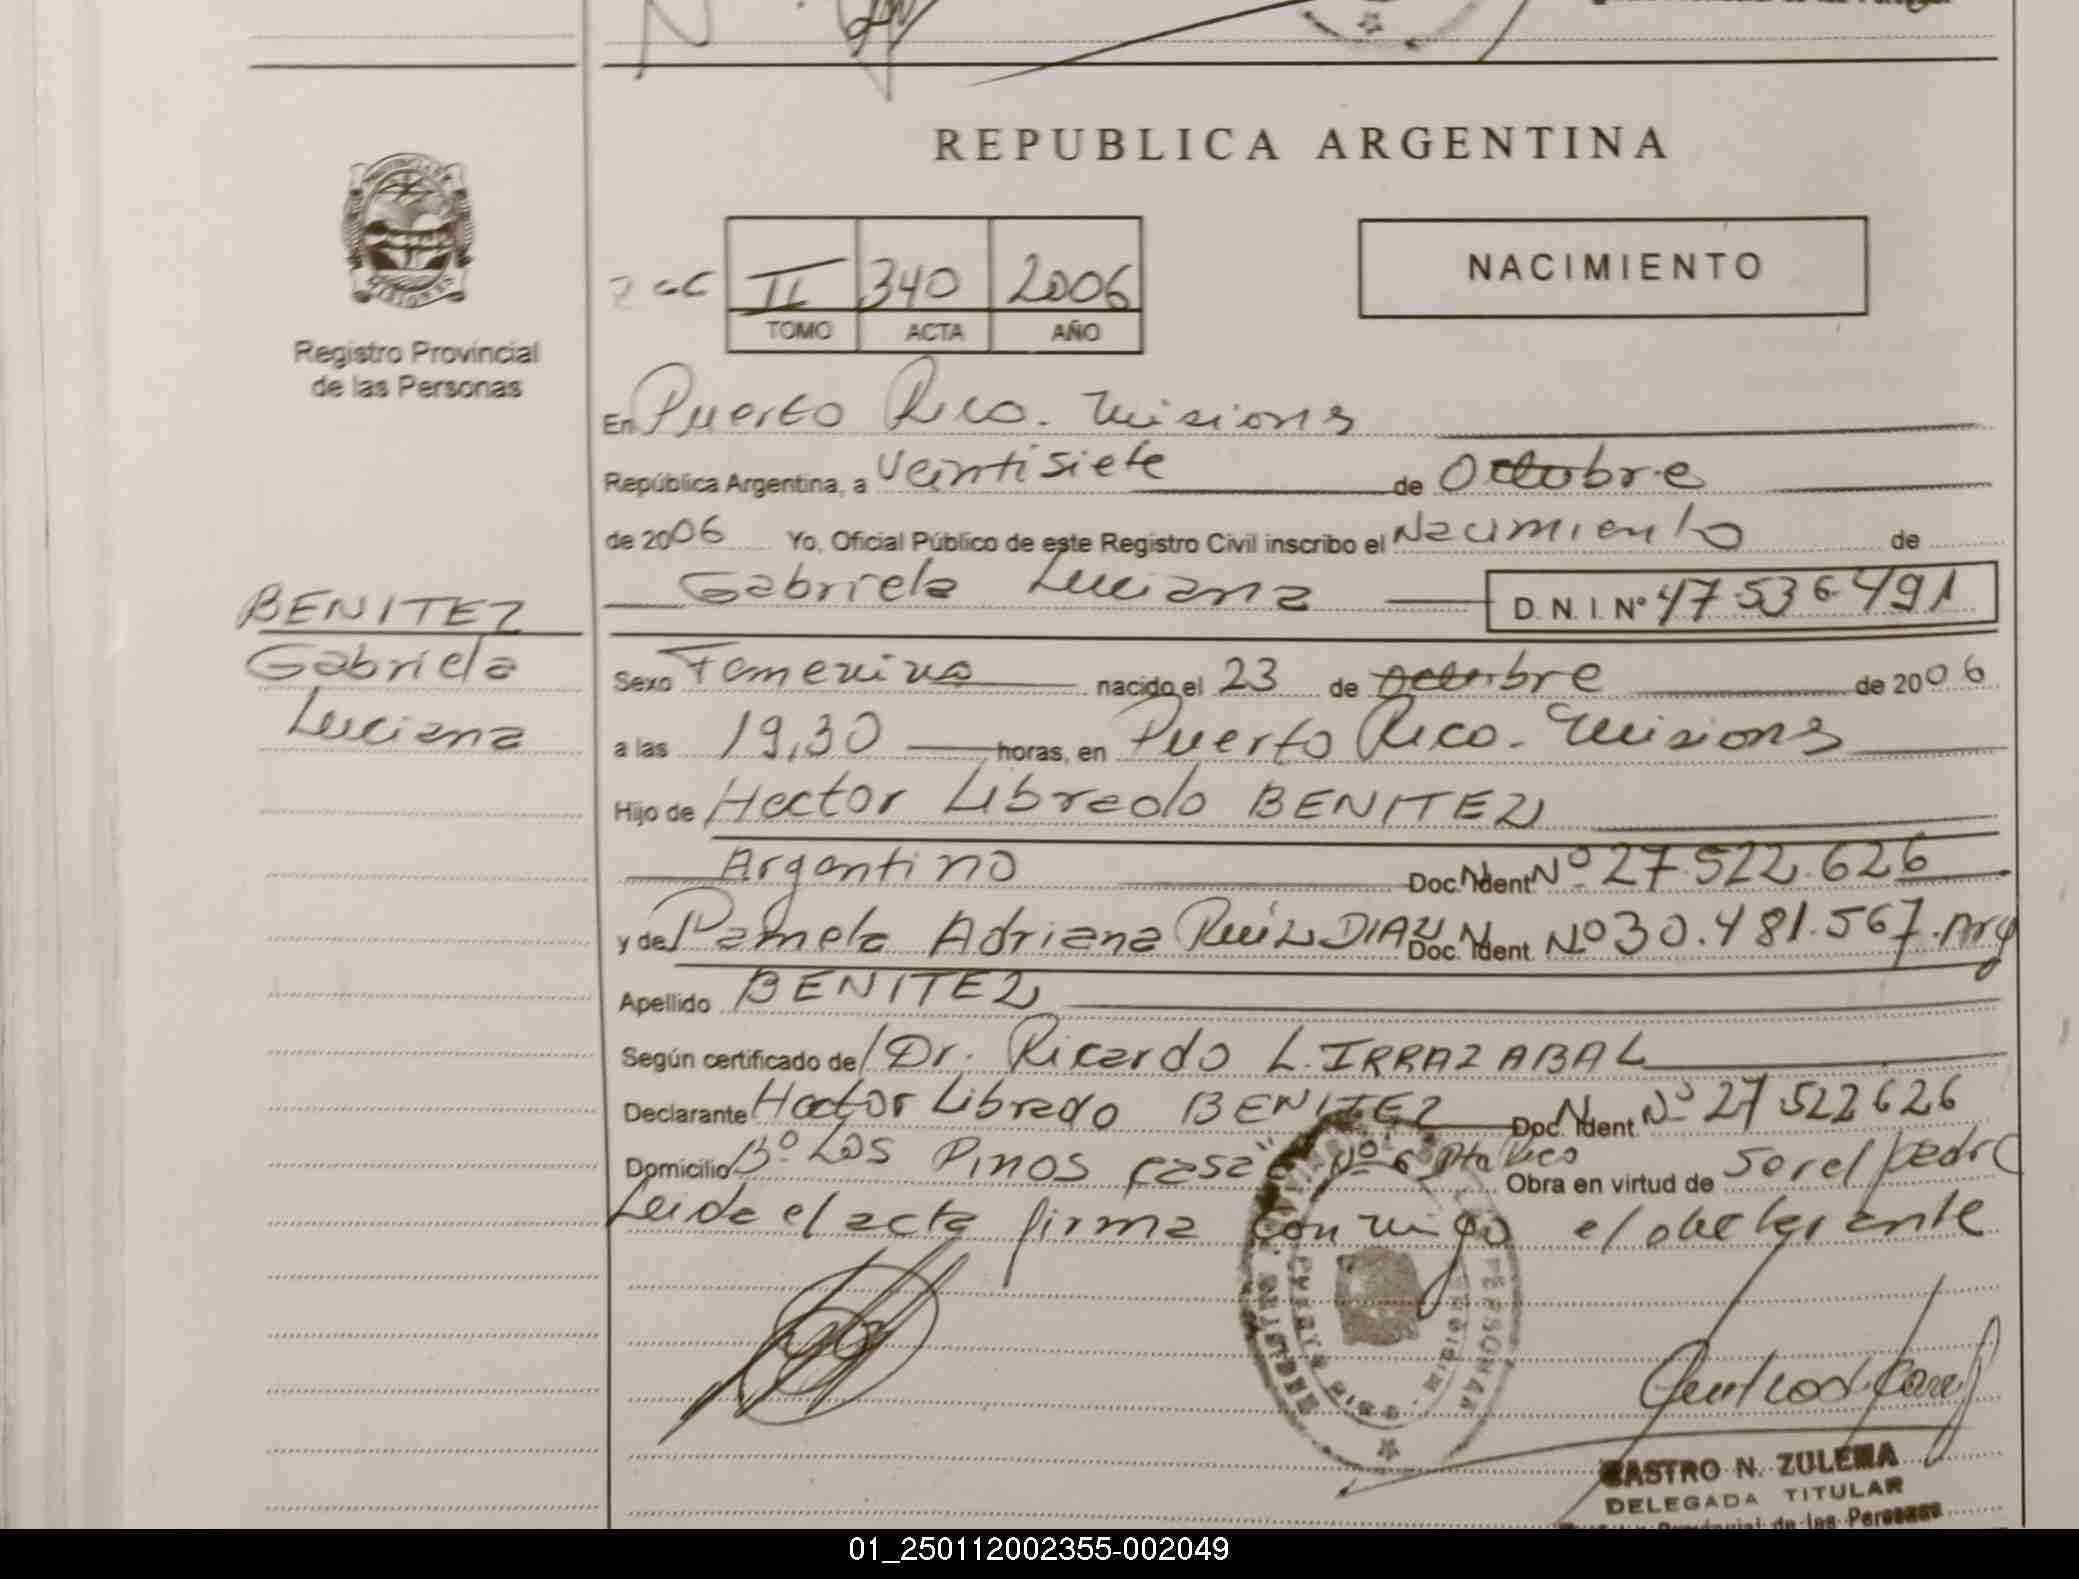 REPUBLICA ARGENTINA
NACIMIENTO
II 340 2006
TOMO ACTA AÑO
Registro Provincial
de las Personas
En Puerto Rico. Misiones
República Argentina, a Veintisiete de Octubre
de 2006 Yo, Oficial Público de este Registro Civil inscribo el Nacimiento de
Gabriela Luciana D. N. I. Nº 47.536.491
BENITEZ
Gabriela
Luciana
Sexo Femenino nacido el 23 de Octubre de 2006
a las 19,30 horas, en Puerto Rico. Misiones
Hijo de Hector Librado BENITEZ
Argentino Doc. N. Ident Nº 27.522.626
y de Pamela Adriana Ruíz DIAZ Doc. N. Ident. Nº 30.481.567. Arg
Apellido BENITEZ
Según certificado de Dr. Ricardo L. IRRAZABAL
Declarante Hector Librado BENITEZ Doc. N. Ident. Nº 27522626
Domicilio Bº Los Pinos casa Nº 6 Pto Rico Obra en virtud de ser el padre
Leida el acta firma conmigo el declarante
CASTRO N. ZULEMA
DELEGADA TITULAR
Provincial de las Personas
01_250112002355-002049